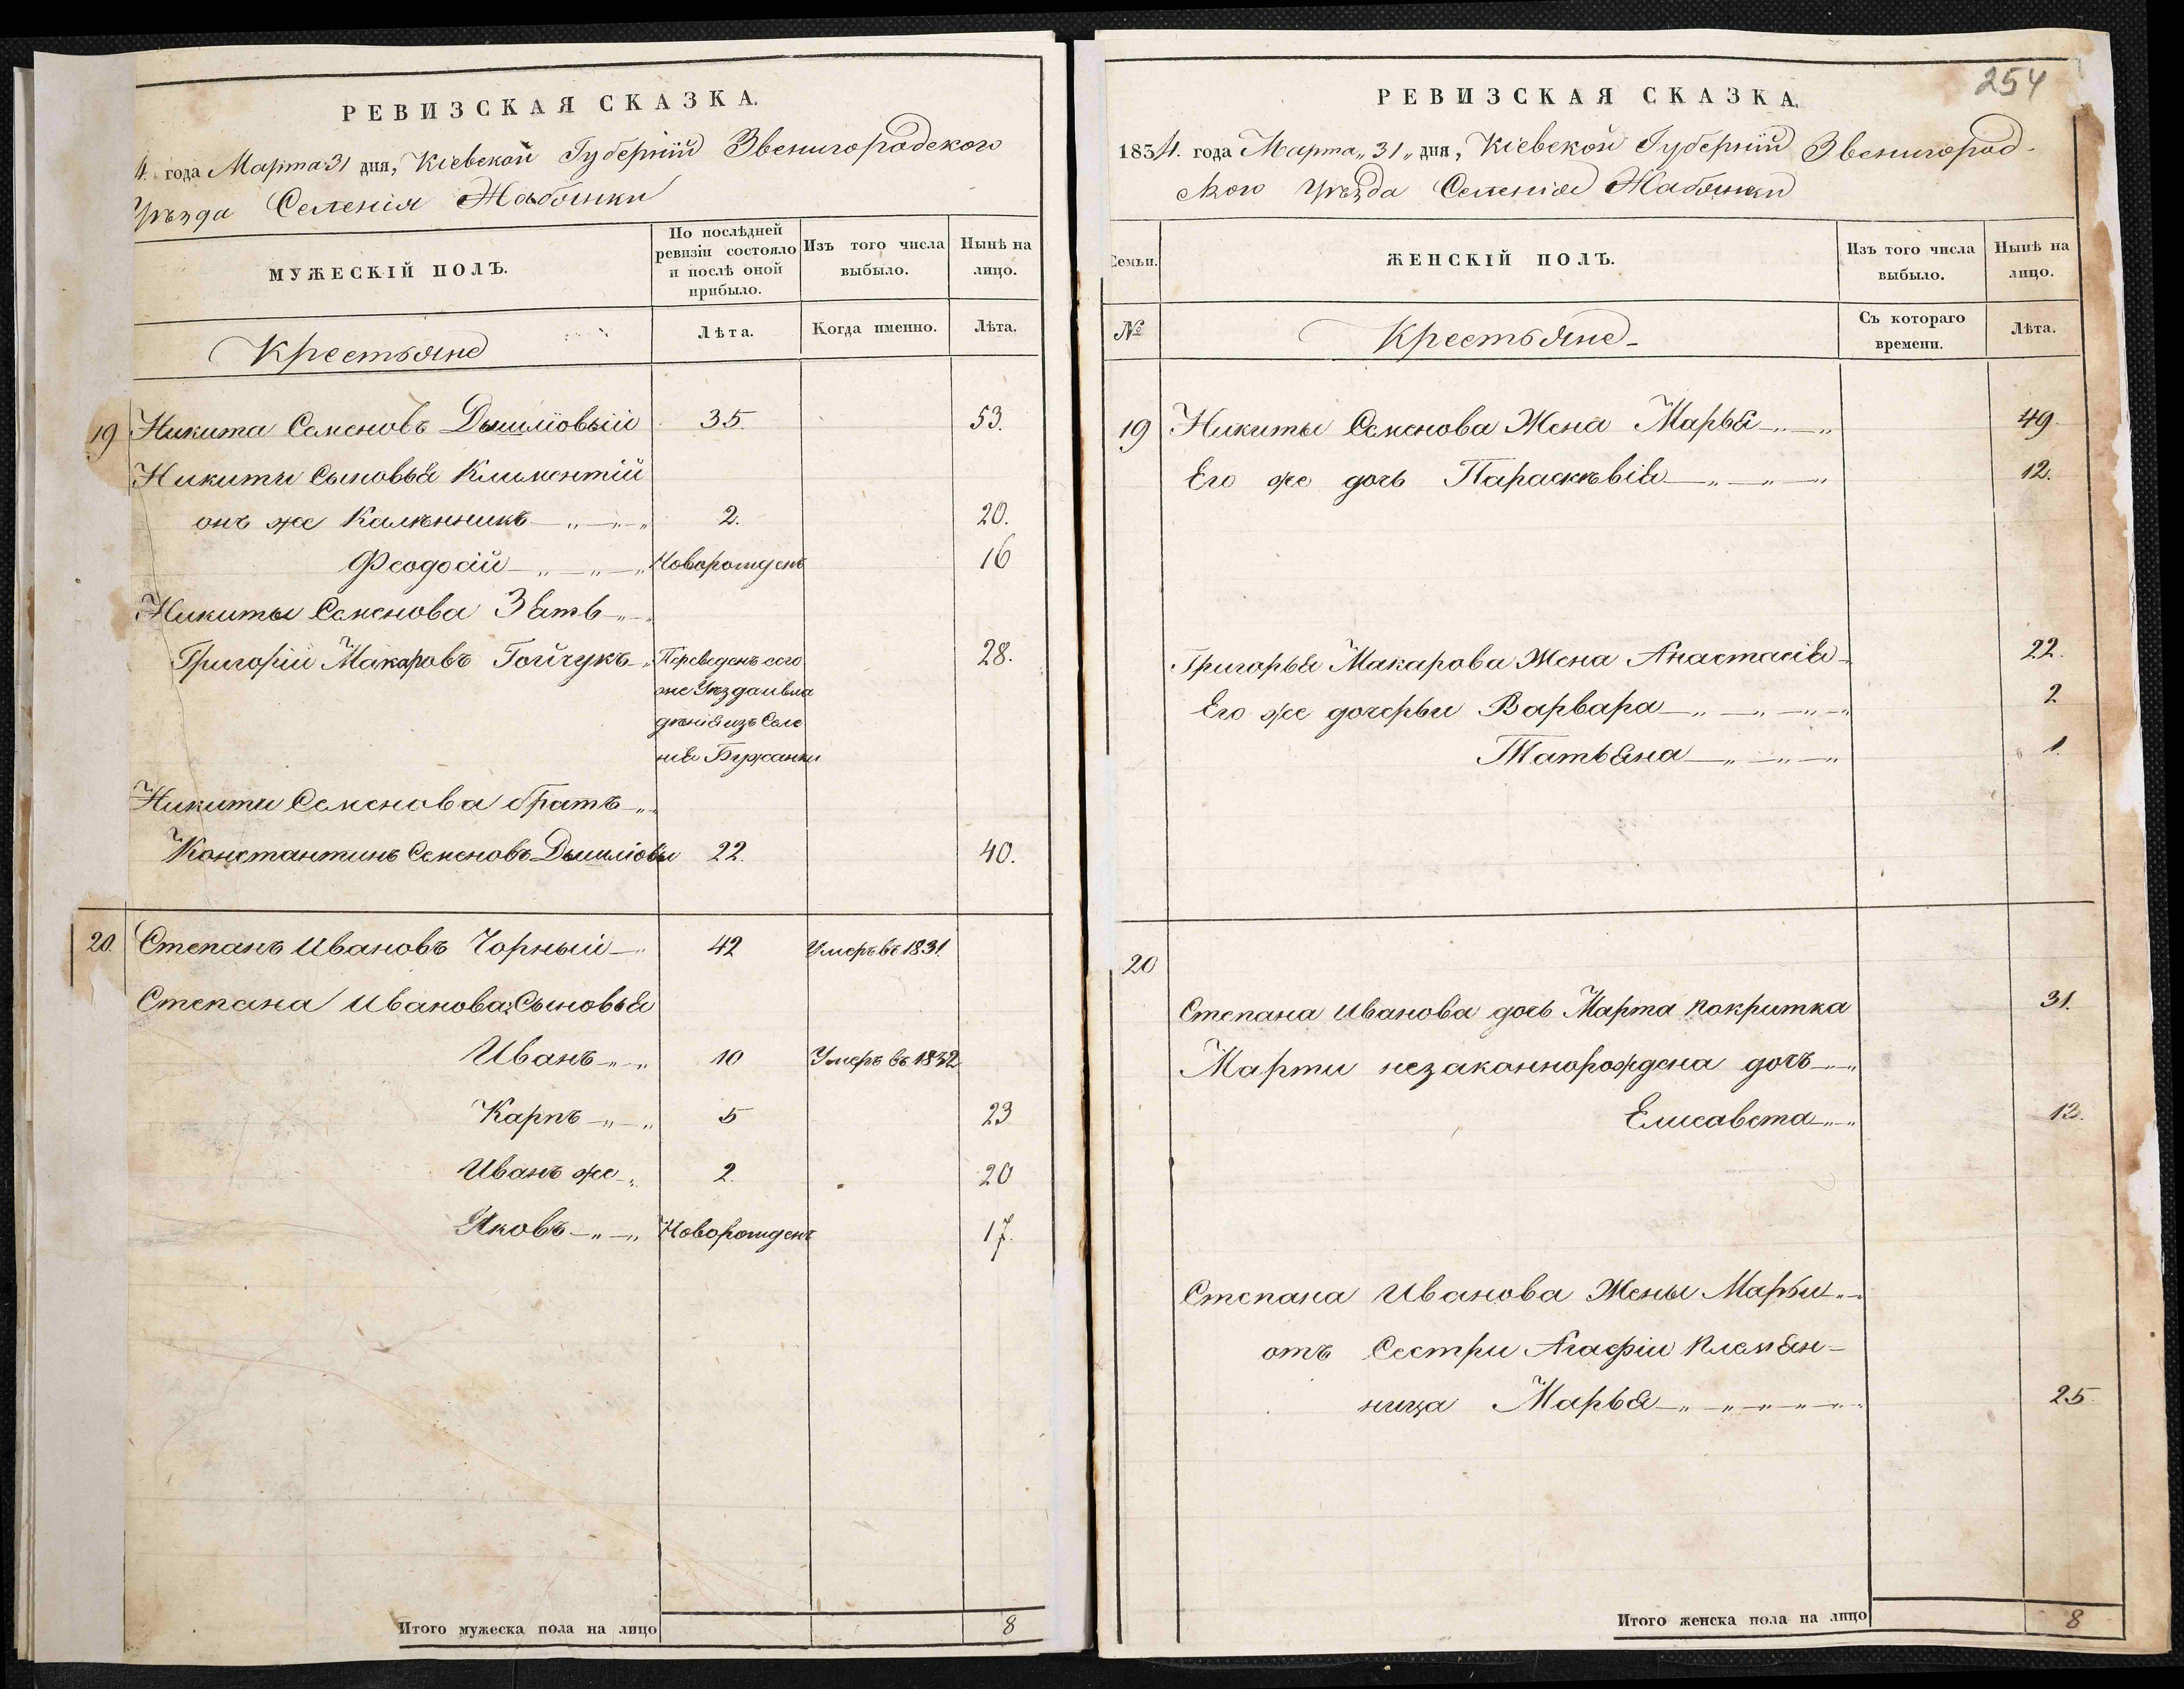 РЕВИЗСКАЯ СКАЗКА.
4. года Марта 31 дня, Кіевской Губерніи Звенигородского
Уѣзда Селенія Жабьянки
МУЖЕСКІЙ ПОЛЪ.
По послѣдней ревизіи состояло и послѣ оной прибыло.
Изъ того числа выбыло.
Нынѣ на лицо.
Крестьяне
Лѣта.
Когда именно.
Лѣта.
19 Никита Семеновъ 35. 53.
Никиты Сыновья Климентій
онъ же Калѣнникъ 2. 20.
Феодосій Новорожденъ 16
Никиты Семенова Зять
Григорій Макаровъ Гойчукъ Переведенъ сего 28.
же Уѣзда и вла
дѣнія изъ Селе
нія Бужанки
Никиты Семенова братъ
Константинъ Семеновъ 22. 40.
20. Степанъ Ивановъ Чорный 42 Умеръ въ 1831.
Степана Иванова Сыновья
Иванъ 10 Умеръ въ 1832
Карпъ 5 23
Иванъ же 2. 20
Яковъ Новорожденъ 17.
Итого мужеска пола на лицо 8
254
РЕВИЗСКАЯ СКАЗКА.
1834. года Марта „31„ дня, Кіевской Губерніи Звенигород-
ского Уѣзда Селенія Жабьянки
Семьи.
ЖЕНСКІЙ ПОЛЪ.
Изъ того числа выбыло.
Нынѣ на лицо.
№
Крестьяне
Съ котораго времени.
Лѣта.
19 Никиты Семенова Жена Марья 49.
Его же дочь Параскѣвія 12.
Григорья Макарова Жена Анастасія 22.
Его же дочерьи Варвара 2
Татьяна 1.
20
Степана Иванова дочь Марта покритка 31.
Марти незаканнорождена дочь
Елисавета 13.
Степана Иванова Жены Марьи
отъ Сестри Агафіи племян-
ница Марья 25
Итого женска пола на лицо 8